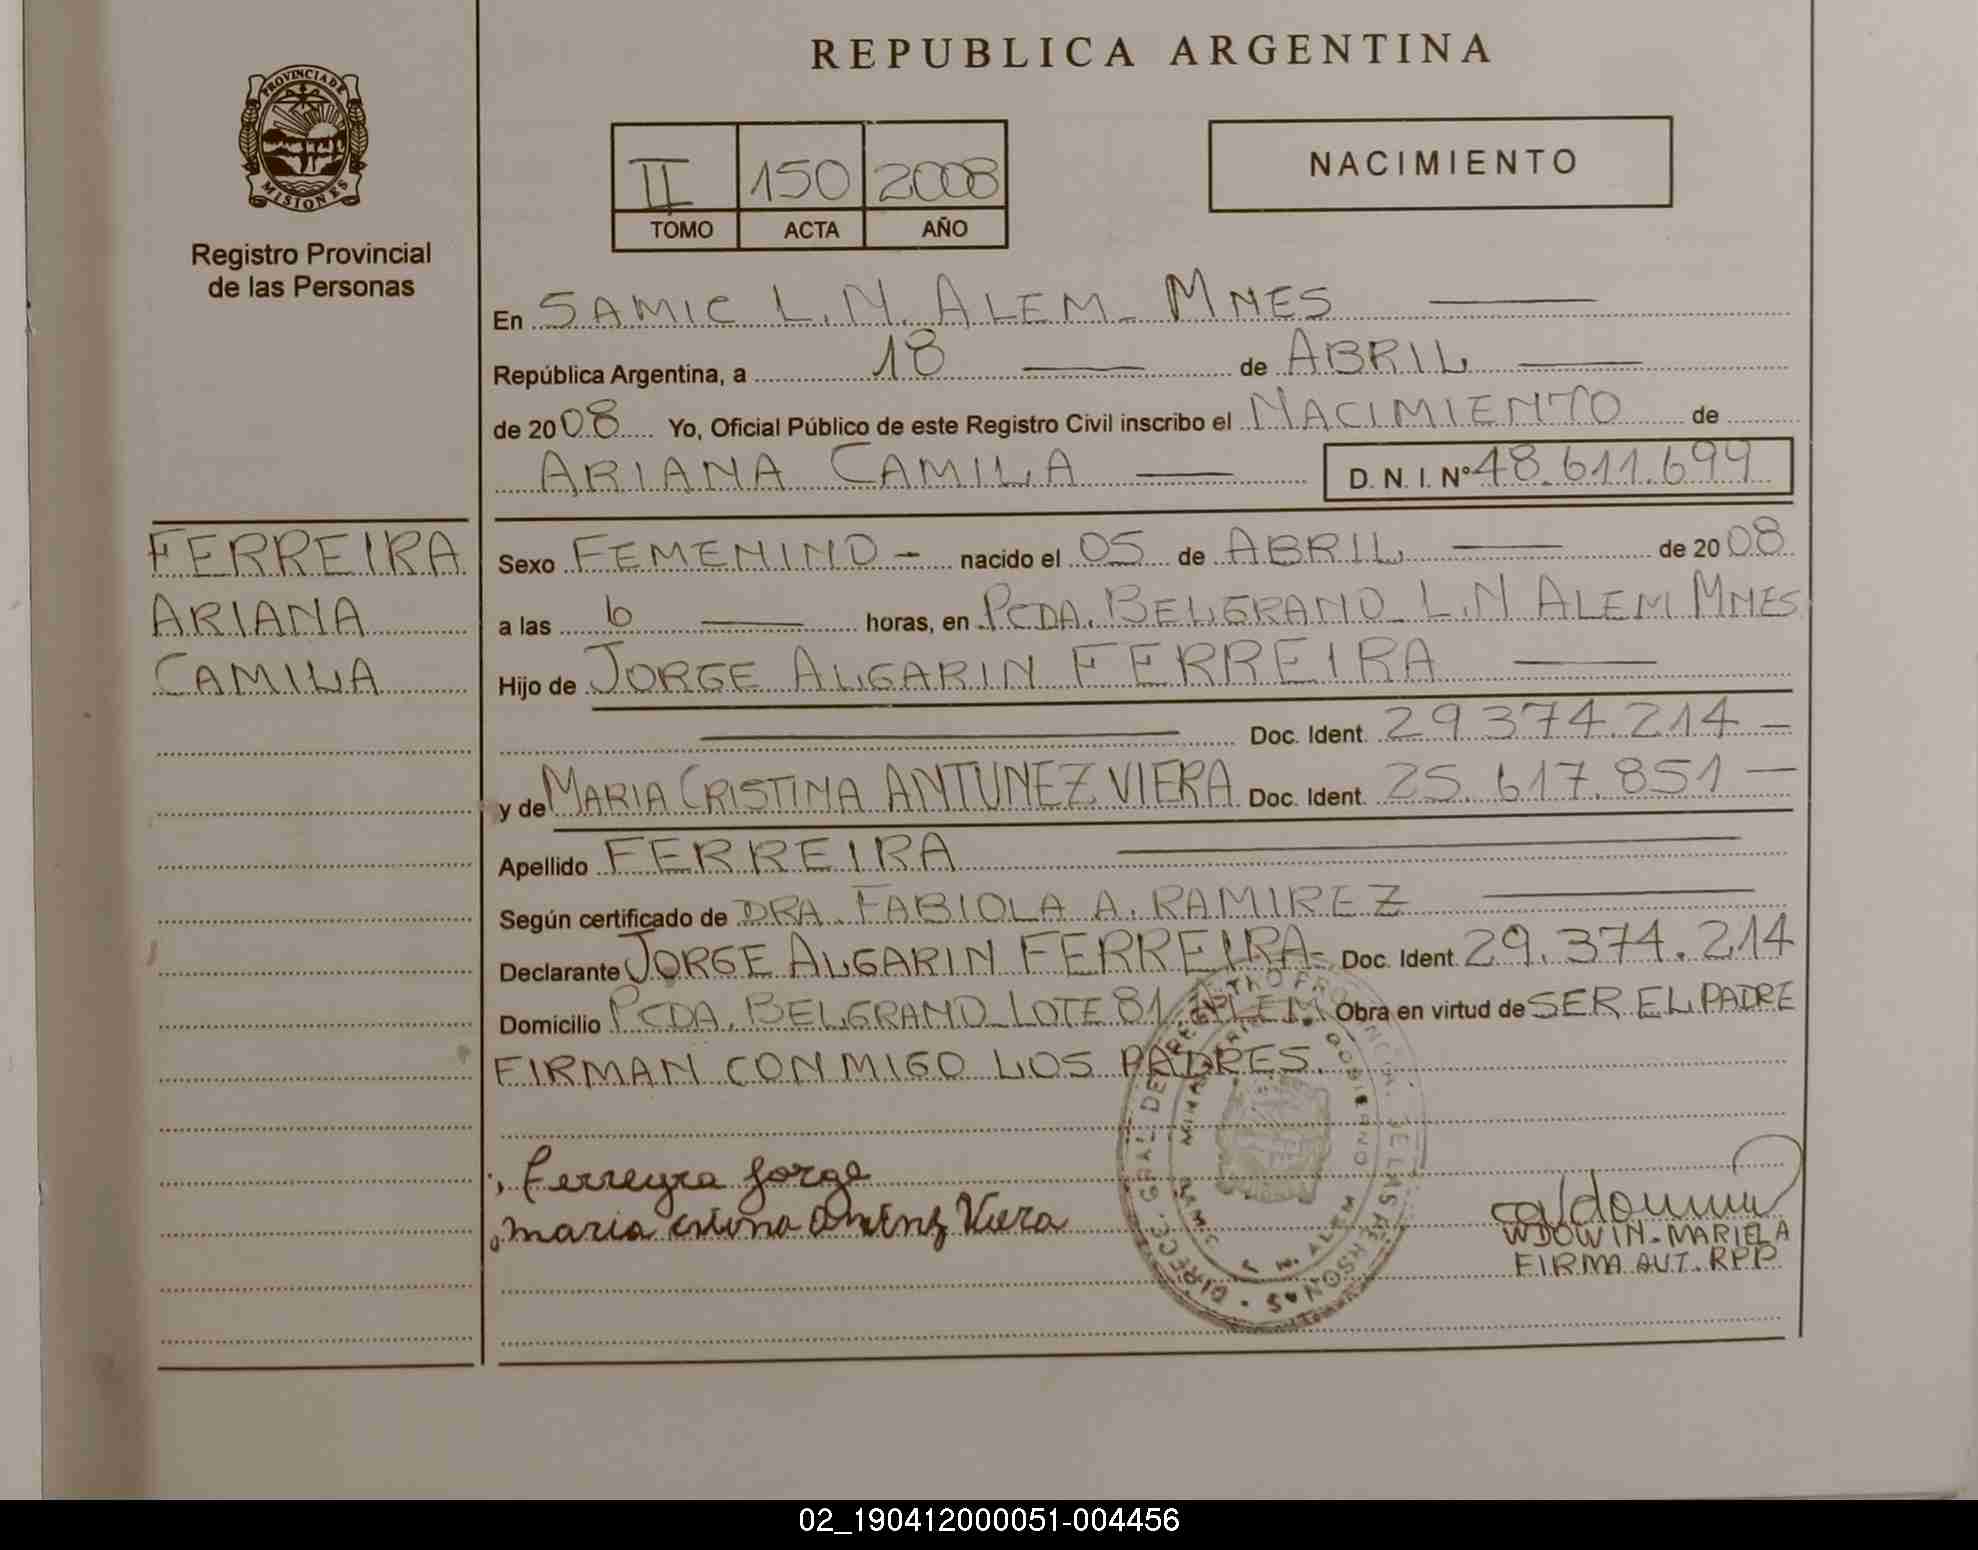 REPUBLICA ARGENTINA
PROVINCIA DE MISIONES
Registro Provincial
de las Personas
II 150 2008
TOMO ACTA AÑO
NACIMIENTO
En SAMIC L.N. ALEM - MNES
República Argentina, a 18 de ABRIL
de 2008 Yo, Oficial Público de este Registro Civil inscribo el NACIMIENTO de
ARIANA CAMILA D. N. I. Nº 48.611.699
FERREIRA
ARIANA
CAMILA
Sexo FEMENINO - nacido el 05 de ABRIL de 2008
a las 6 horas, en PCDA. BELGRANO L.N ALEM MNES
Hijo de JORGE ALGARIN FERREIRA
Doc. Ident. 29.374.214 -
y de MARIA CRISTINA ANTUNEZ VIERA Doc. Ident. 25.617.851 -
Apellido FERREIRA
Según certificado de DRA. FABIOLA A. RAMIREZ
Declarante JORGE ALGARIN FERREIRA - Doc. Ident. 29.374.214
Domicilio PCDA. BELGRANO LOTE 81 ALEM Obra en virtud de SER EL PADRE
FIRMAN CONMIGO LOS PADRES.
Ferreyra Jorge
maria Viera
WDOWIN - MARIELA
FIRMA AUT. RPP
02_190412000051-004456